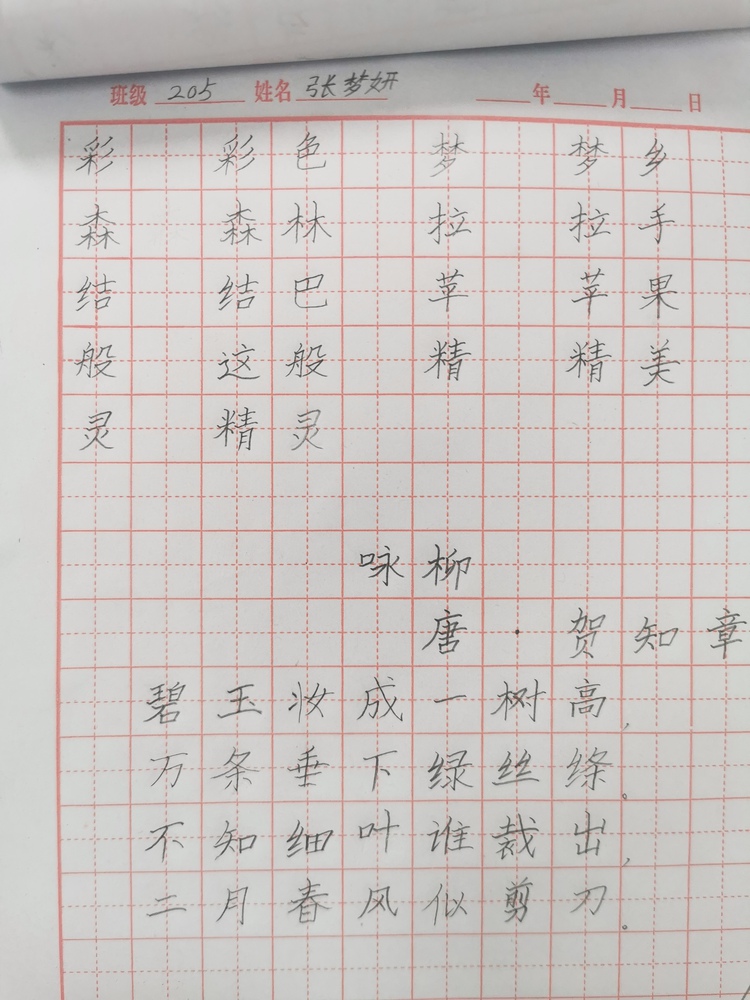 班级 205 姓名 张梦妍 年 月 日
彩 彩色 梦 梦乡
森 森林 拉 拉手
结 结巴 苹 苹果
般 这般 精 精美
灵 精灵
咏柳
唐·贺知章
碧玉妆成一树高，
万条垂下绿丝绦。
不知细叶谁裁出，
二月春风似剪刀。